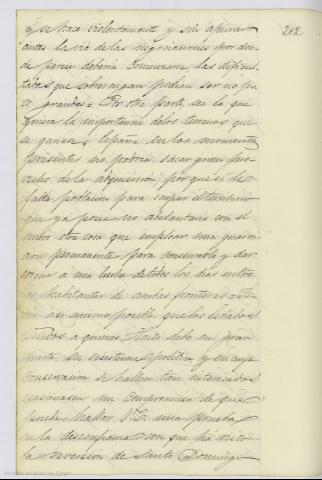 262
se hace violentamente y sin apurar
antes la via de las negociaciones por don-
de parece deberia comenzarse, las dificul-
tades que sobrevengan podrian ser no po-
co grandes. Por otra parte, sea la que
quiera la importancia de los terrenos que
se ganan, España en los momentos
presentes no podria sacar gran pro-
vecho de la adquisicion; porque si le
falta poblacion para ocupar el territorio
que ya posee no adelantaria con el
nuevo otra cosa que emplear una guarni-
cion permanente para conservarlo y dar
origen a una lucha de todos los dias entre
los habitantes de ambas fronteras.
asi mismo posible que los Estados
Unidos a quienes Haiti debe en gran
parte su existencia politica y en cuya
conservacion se hallan tan interesados
ocasionasen un compromiso de que
puede hallar V.E. una prueba
en la desconfianza con que ha visto
la reversion de Santo Domingo